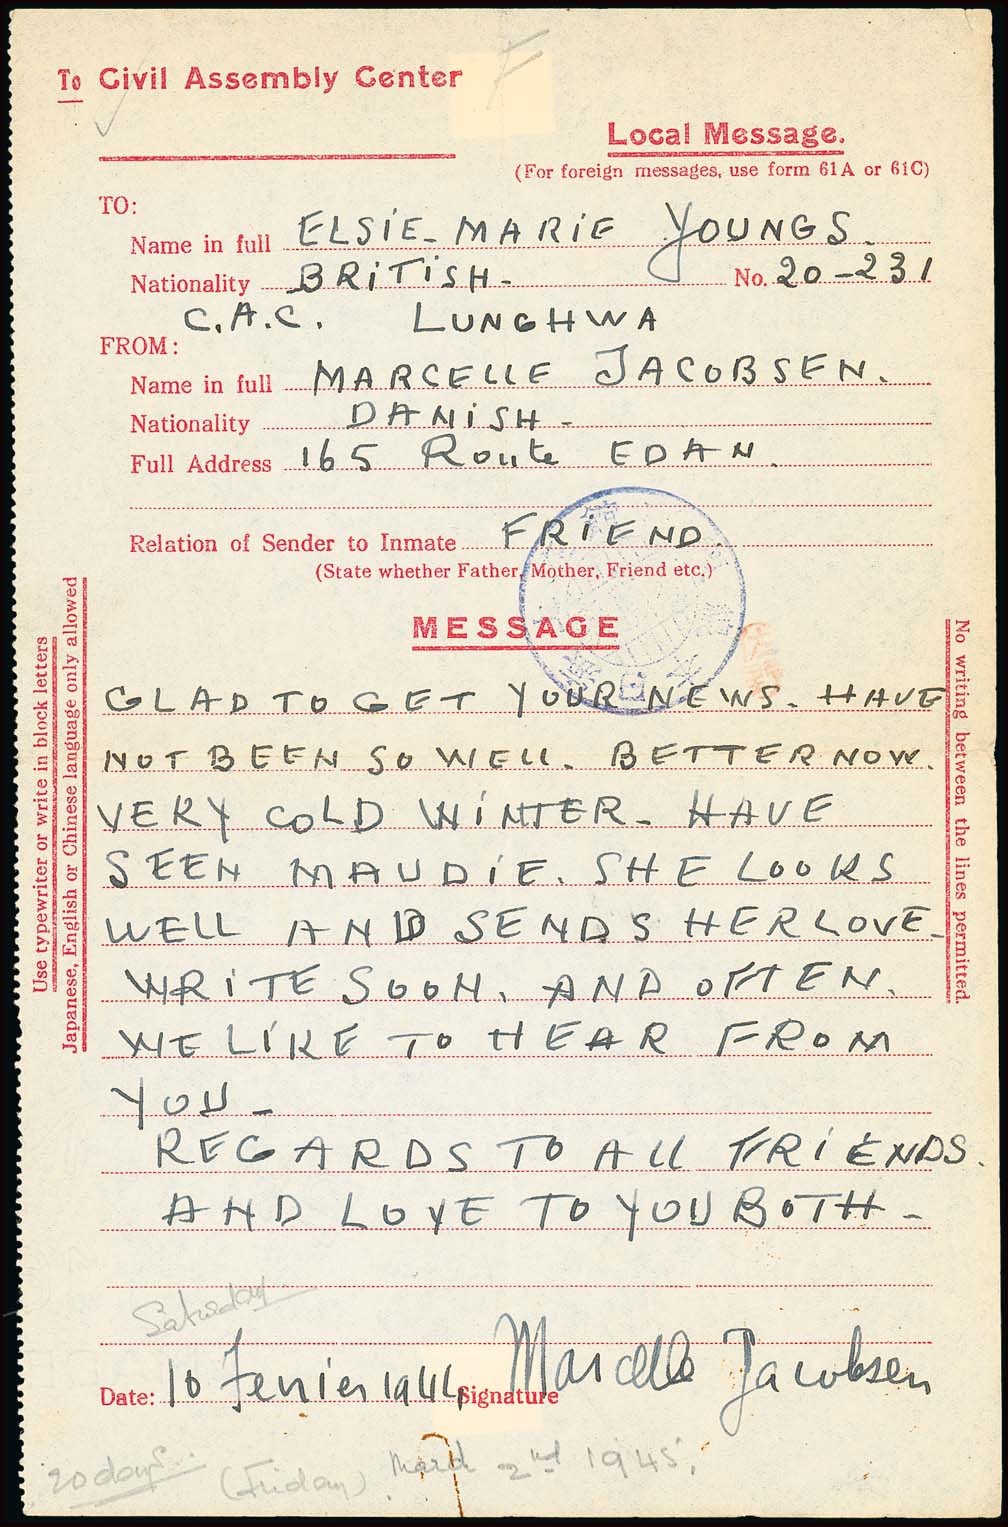 To Civil Assembly Center
Local Message.
(For foreign messages, use form 61A or 61C)
TO:
Name in full ELSiE-MARiE YOUNGS.
Nationality BRiTiSH- No. 20-231
C.A.C. LUNGHWA
FROM:
Name in full MARCELLE JACOBSEN.
Nationality DANiSH-
Full Address 165 Route EDAN.
Relation of Sender to Inmate FRIEND
(State whether Father, Mother, Friend etc.)
MESSAGE
Use typewriter or write in block letters
Japanese, English or Chinese language only allowed
No writing between the lines permitted.
GLAD TO GET YOUR NEWS. HAVE
NOT BEEN SO WELL. BETTER NOW.
VERY COLD WiNTER- HAVE
SEEN MAUDiE. SHE LOOKS
WELL AND SENDS HER LOVE-
WRiTE SOON, AND OFTEN.
WE LIKE TO HEAR FROM
YOU-
REGARDS TO ALL FRIENDS.
AND LOVE TO YOU BOTH-
Saturday
Date: 10 1944 Signature Marcelle Jacobsen
20 days (Friday) March 2nd 1945,